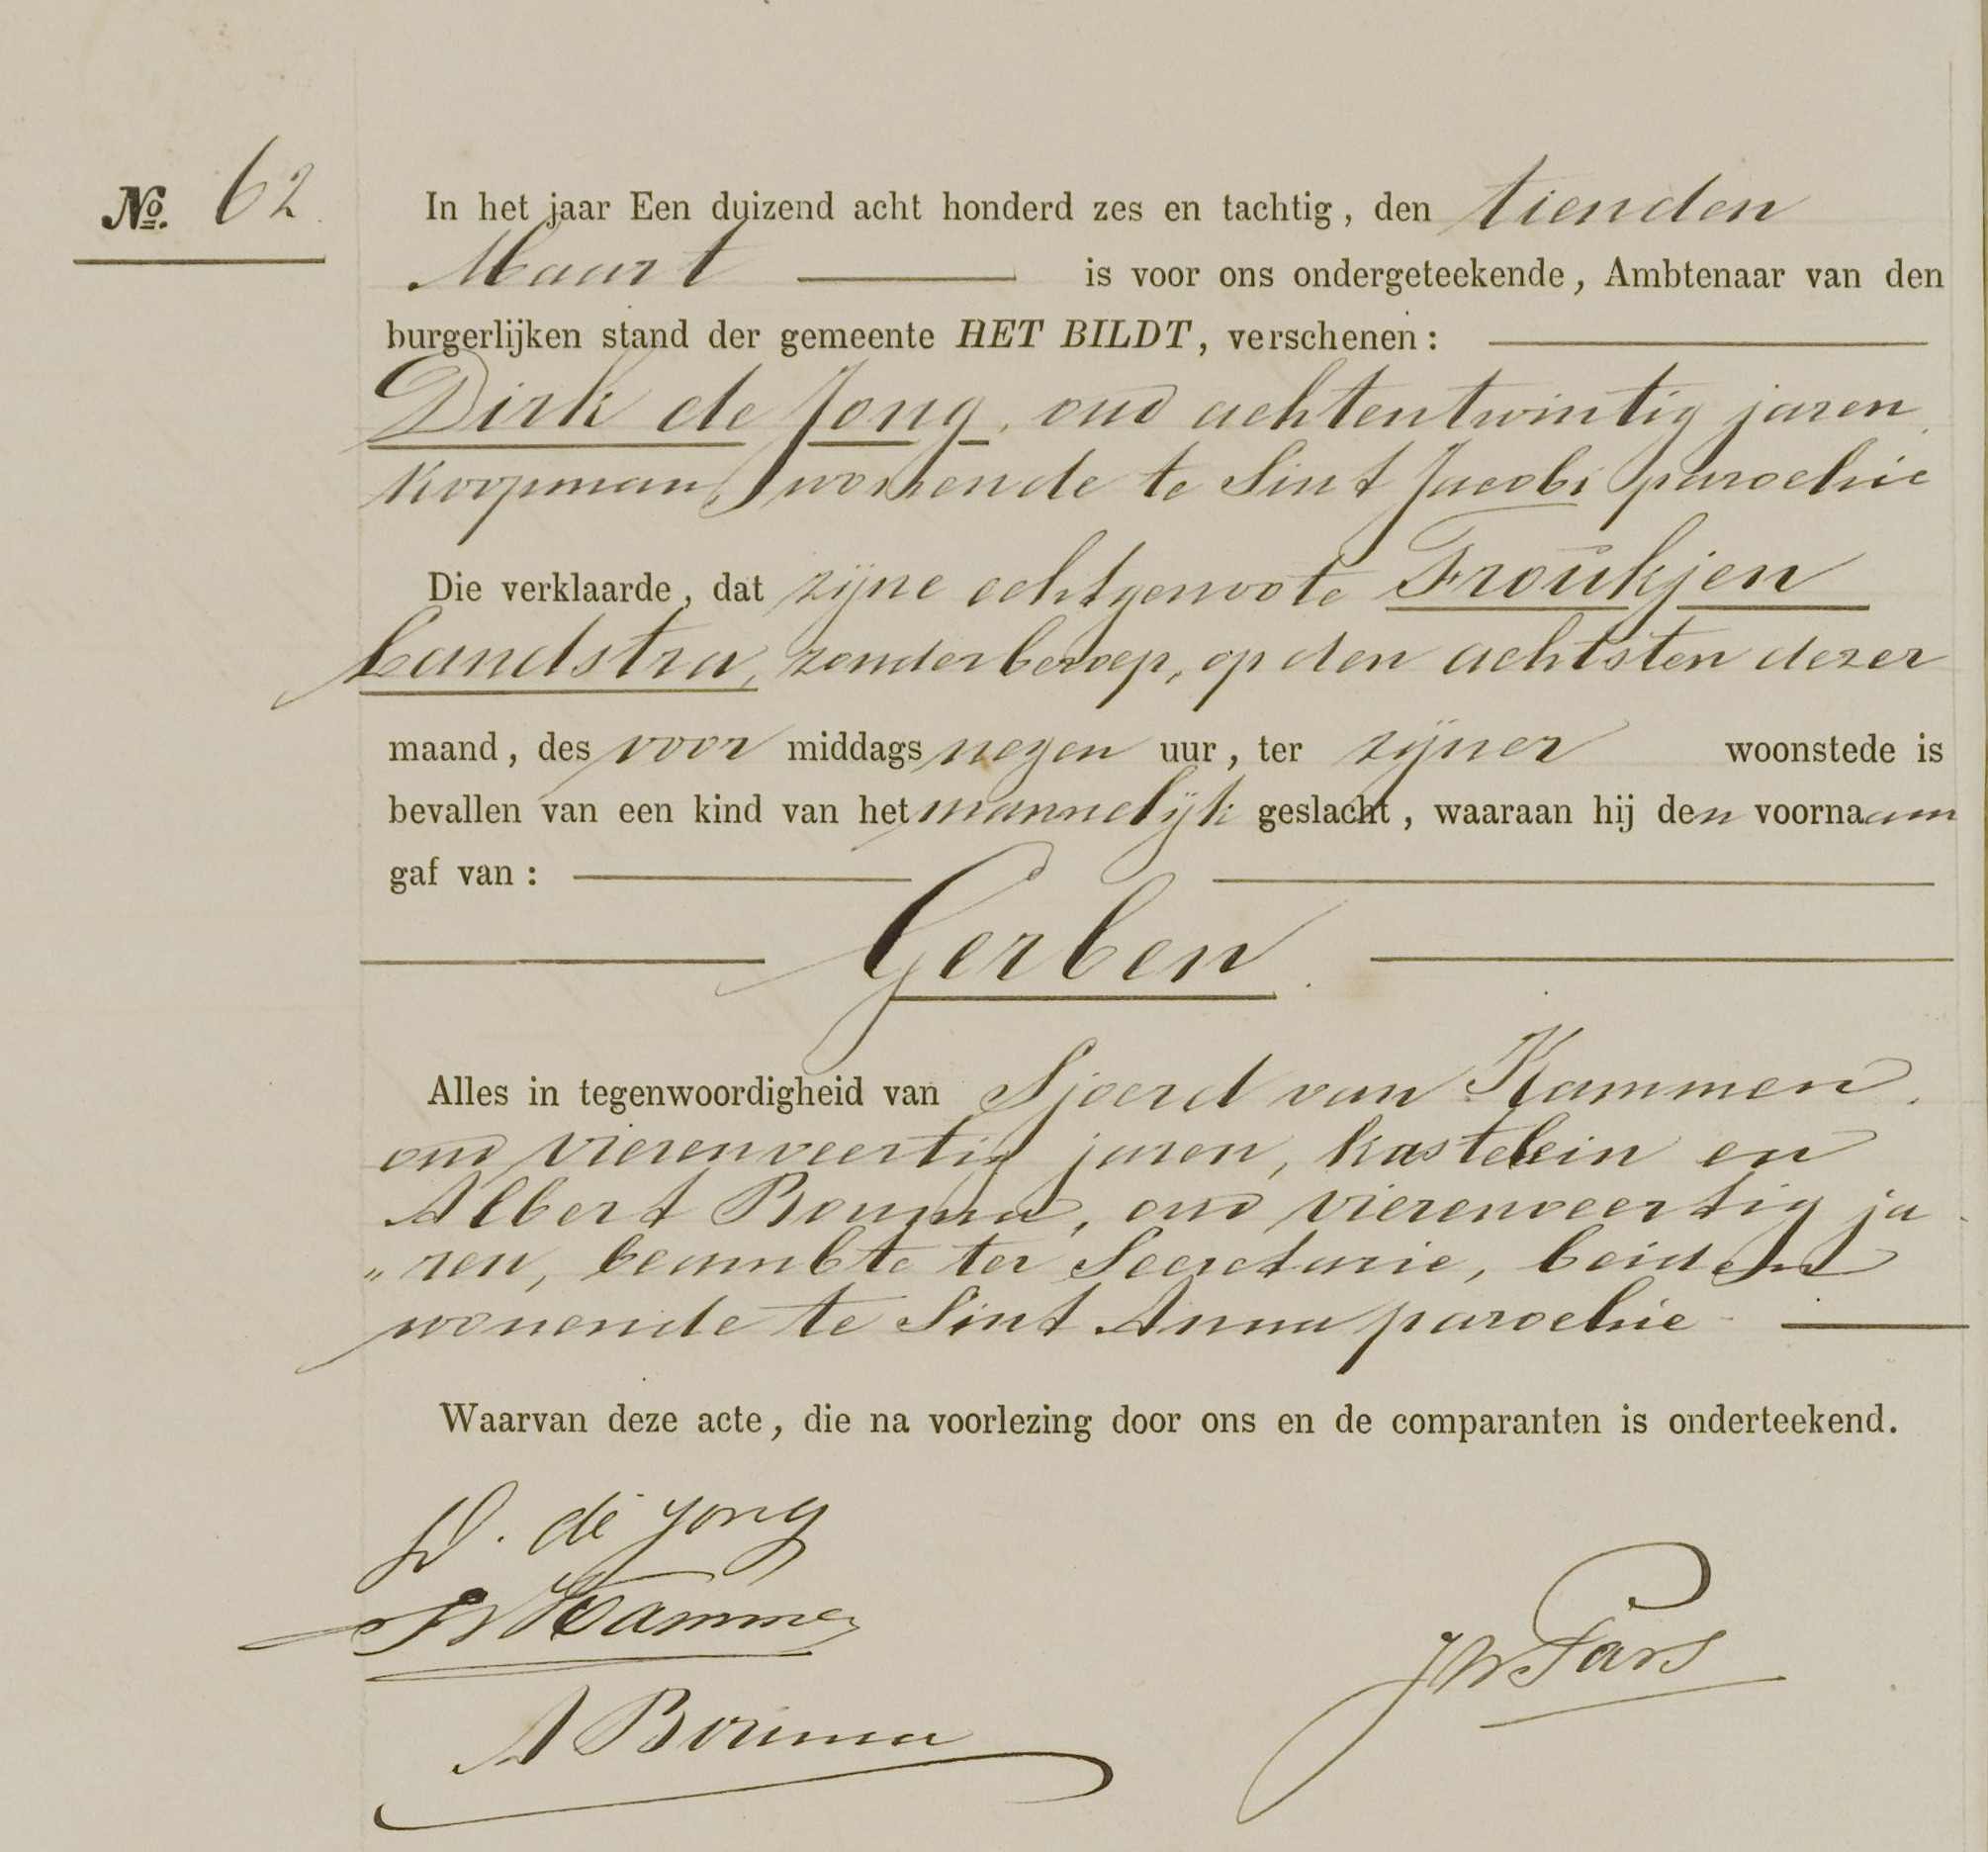 No. 62
In het jaar Een duizend acht honderd zes en tachtig, den tienden
Maart is voor ons ondergeteekende, Ambtenaar van den
burgerlijken stand der gemeente HET BILDT, verschenen:
Dirk de Jong, oud achtentwintig jaren,
Koopman, wonende te Sint Jacobi parochie
Die verklaarde, dat zijne echtgenoote Froukjen
Landstra, zonder beroep, op den achtsten dezer
maand, des voor middags negen uur, ter zijner woonstede is
bevallen van een kind van het mannelijk geslacht, waaraan hij den voornaam
gaf van:
Gerben.
Alles in tegenwoordigheid van Sjoerd van Kammen,
oud vierenveertig jaren, kastelein en
Albert Bouma, oud vierenveertig ja
„ren, beambte ter Secretarie, beiden
wonende te Sint Anna parochie
Waarvan deze acte, die na voorlezing door ons en de comparanten is onderteekend.
D. de Jong
S v Kammen
A Bouma
JW Pars